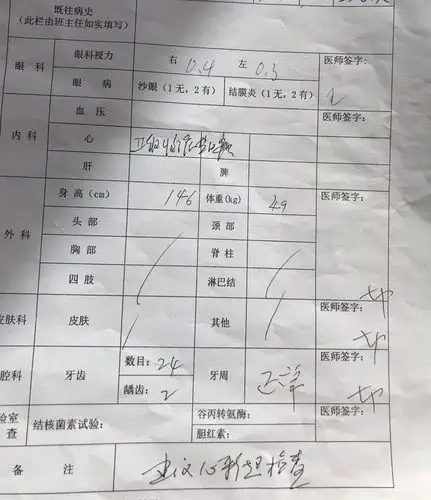 既往病史
（此栏由班主任如实填写）
眼科
眼科视力 右 0.4 左 0.3 医师签字：
眼病 沙眼（1无，2有） 结膜炎（1无，2有）
内科
血压 医师签字：
心 II级收缩期杂音
肝 脾
外科
身高（cm） 146 体重（kg） 49 医师签字：
头部 颈部
胸部 脊柱
四肢 淋巴结
皮肤科 皮肤 其他 医师签字：
腔科 牙齿 数目：24 牙周 正常 医师签字：
龋齿：2
验室
查 结核菌素试验： 谷丙转氨酶： 医师签字：
胆红素：
备注 建议心彩超检查